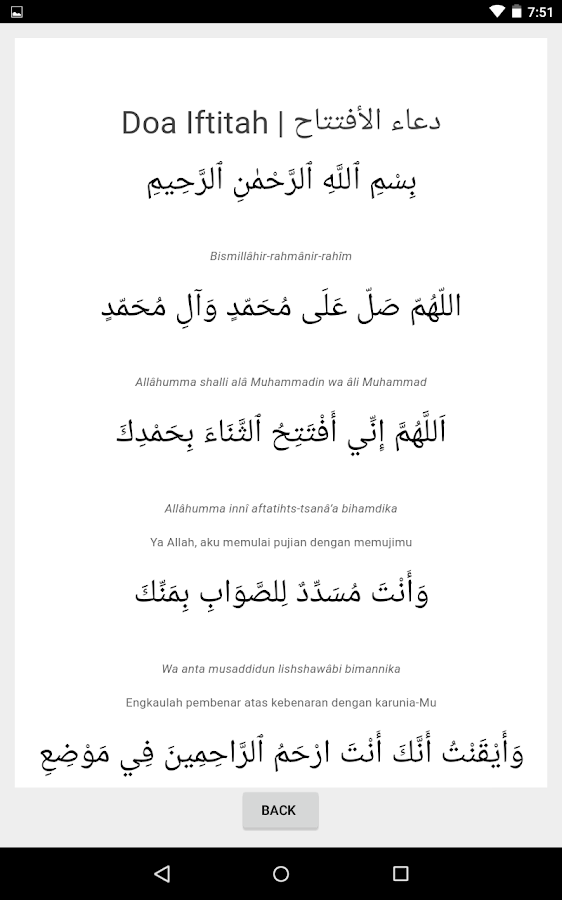 7:51
Doa Iftitah | دعاء الأفتتاح
بِسْمِ ٱللَّهِ ٱلرَّحْمٰنِ ٱلرَّحِيمِ
Bismillâhir-rahmânir-rahîm
اللّهُمّ صَلّ عَلَى مُحَمّدٍ وَآلِ مُحَمّدٍ
Allâhumma shalli alâ Muhammadin wa âli Muhammad
اَللَّهُمَّ إِنِّي أَفْتَتِحُ ٱلثَّنَاءَ بِحَمْدِكَ
Allâhumma innî aftatihts-tsanâ'a bihamdika
Ya Allah, aku memulai pujian dengan memujimu
وَأَنْتَ مُسَدِّدٌ لِلصَّوَابِ بِمَنِّكَ
Wa anta musaddidun lishshawâbi bimannika
Engkaulah pembenar atas kebenaran dengan karunia-Mu
وَأَيْقَنْتُ أَنَّكَ أَنْتَ ارْحَمُ ٱلرَّاحِمِينَ فِي مَوْضِعِ
BACK